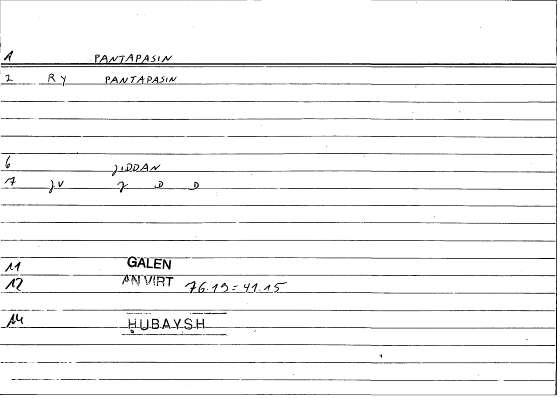 1 PANTAPASIN
2 R y PANTAPASIN
6 JIDDAN
7 jv j D D
11 GALEN
12 AN VIRT 76.19 = 41.15
14 ḤUBAYSH